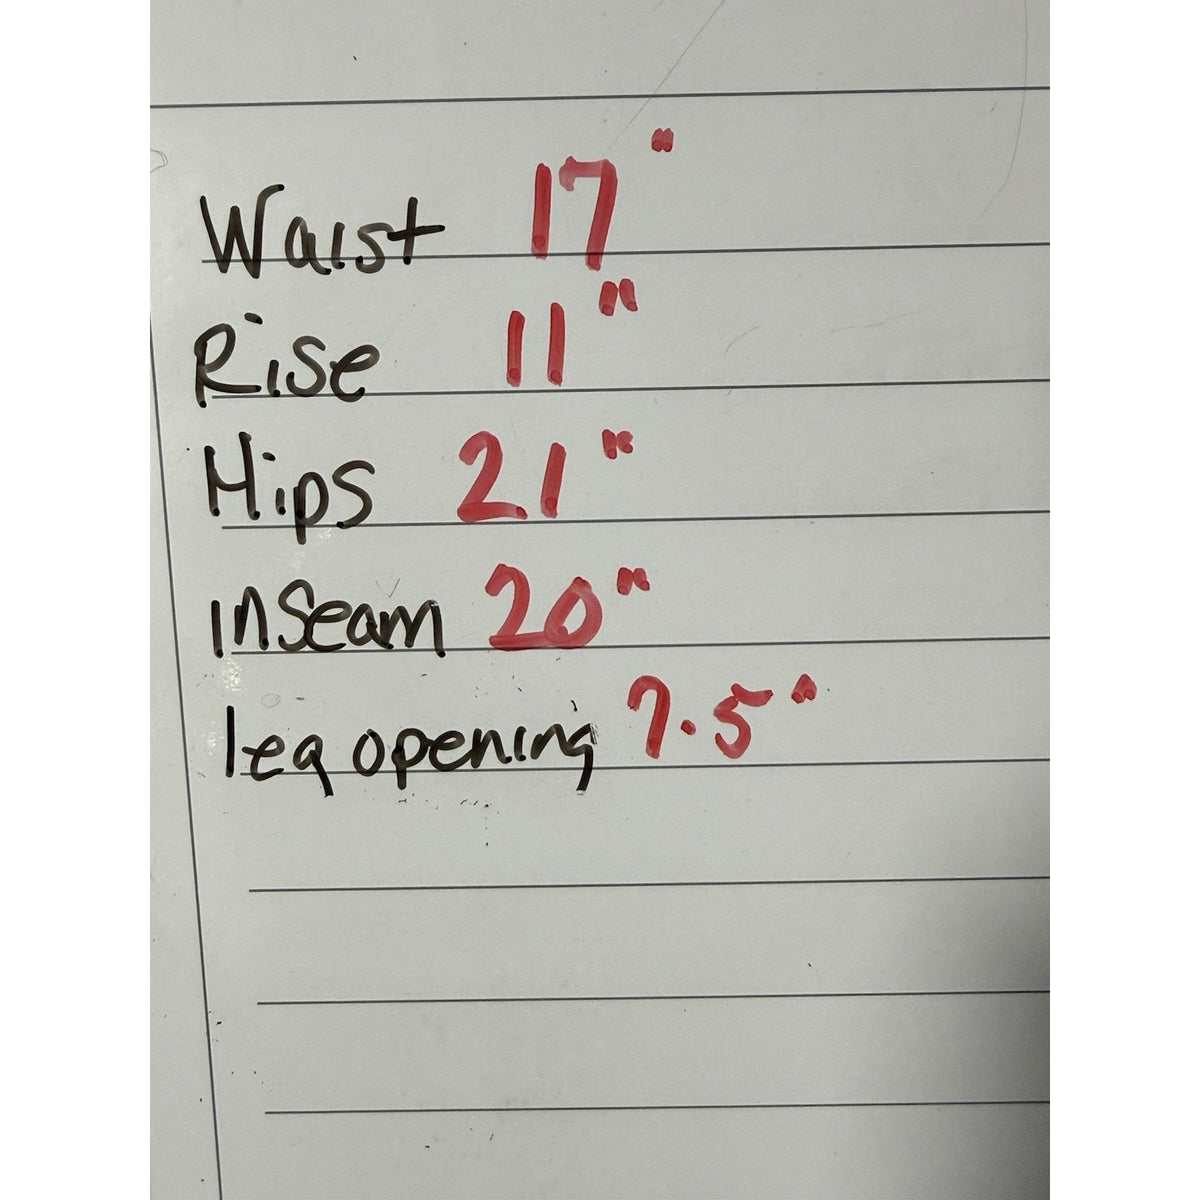 Waist 17"
Rise 11"
Hips 21"
inseam 20"
leg opening 7.5"